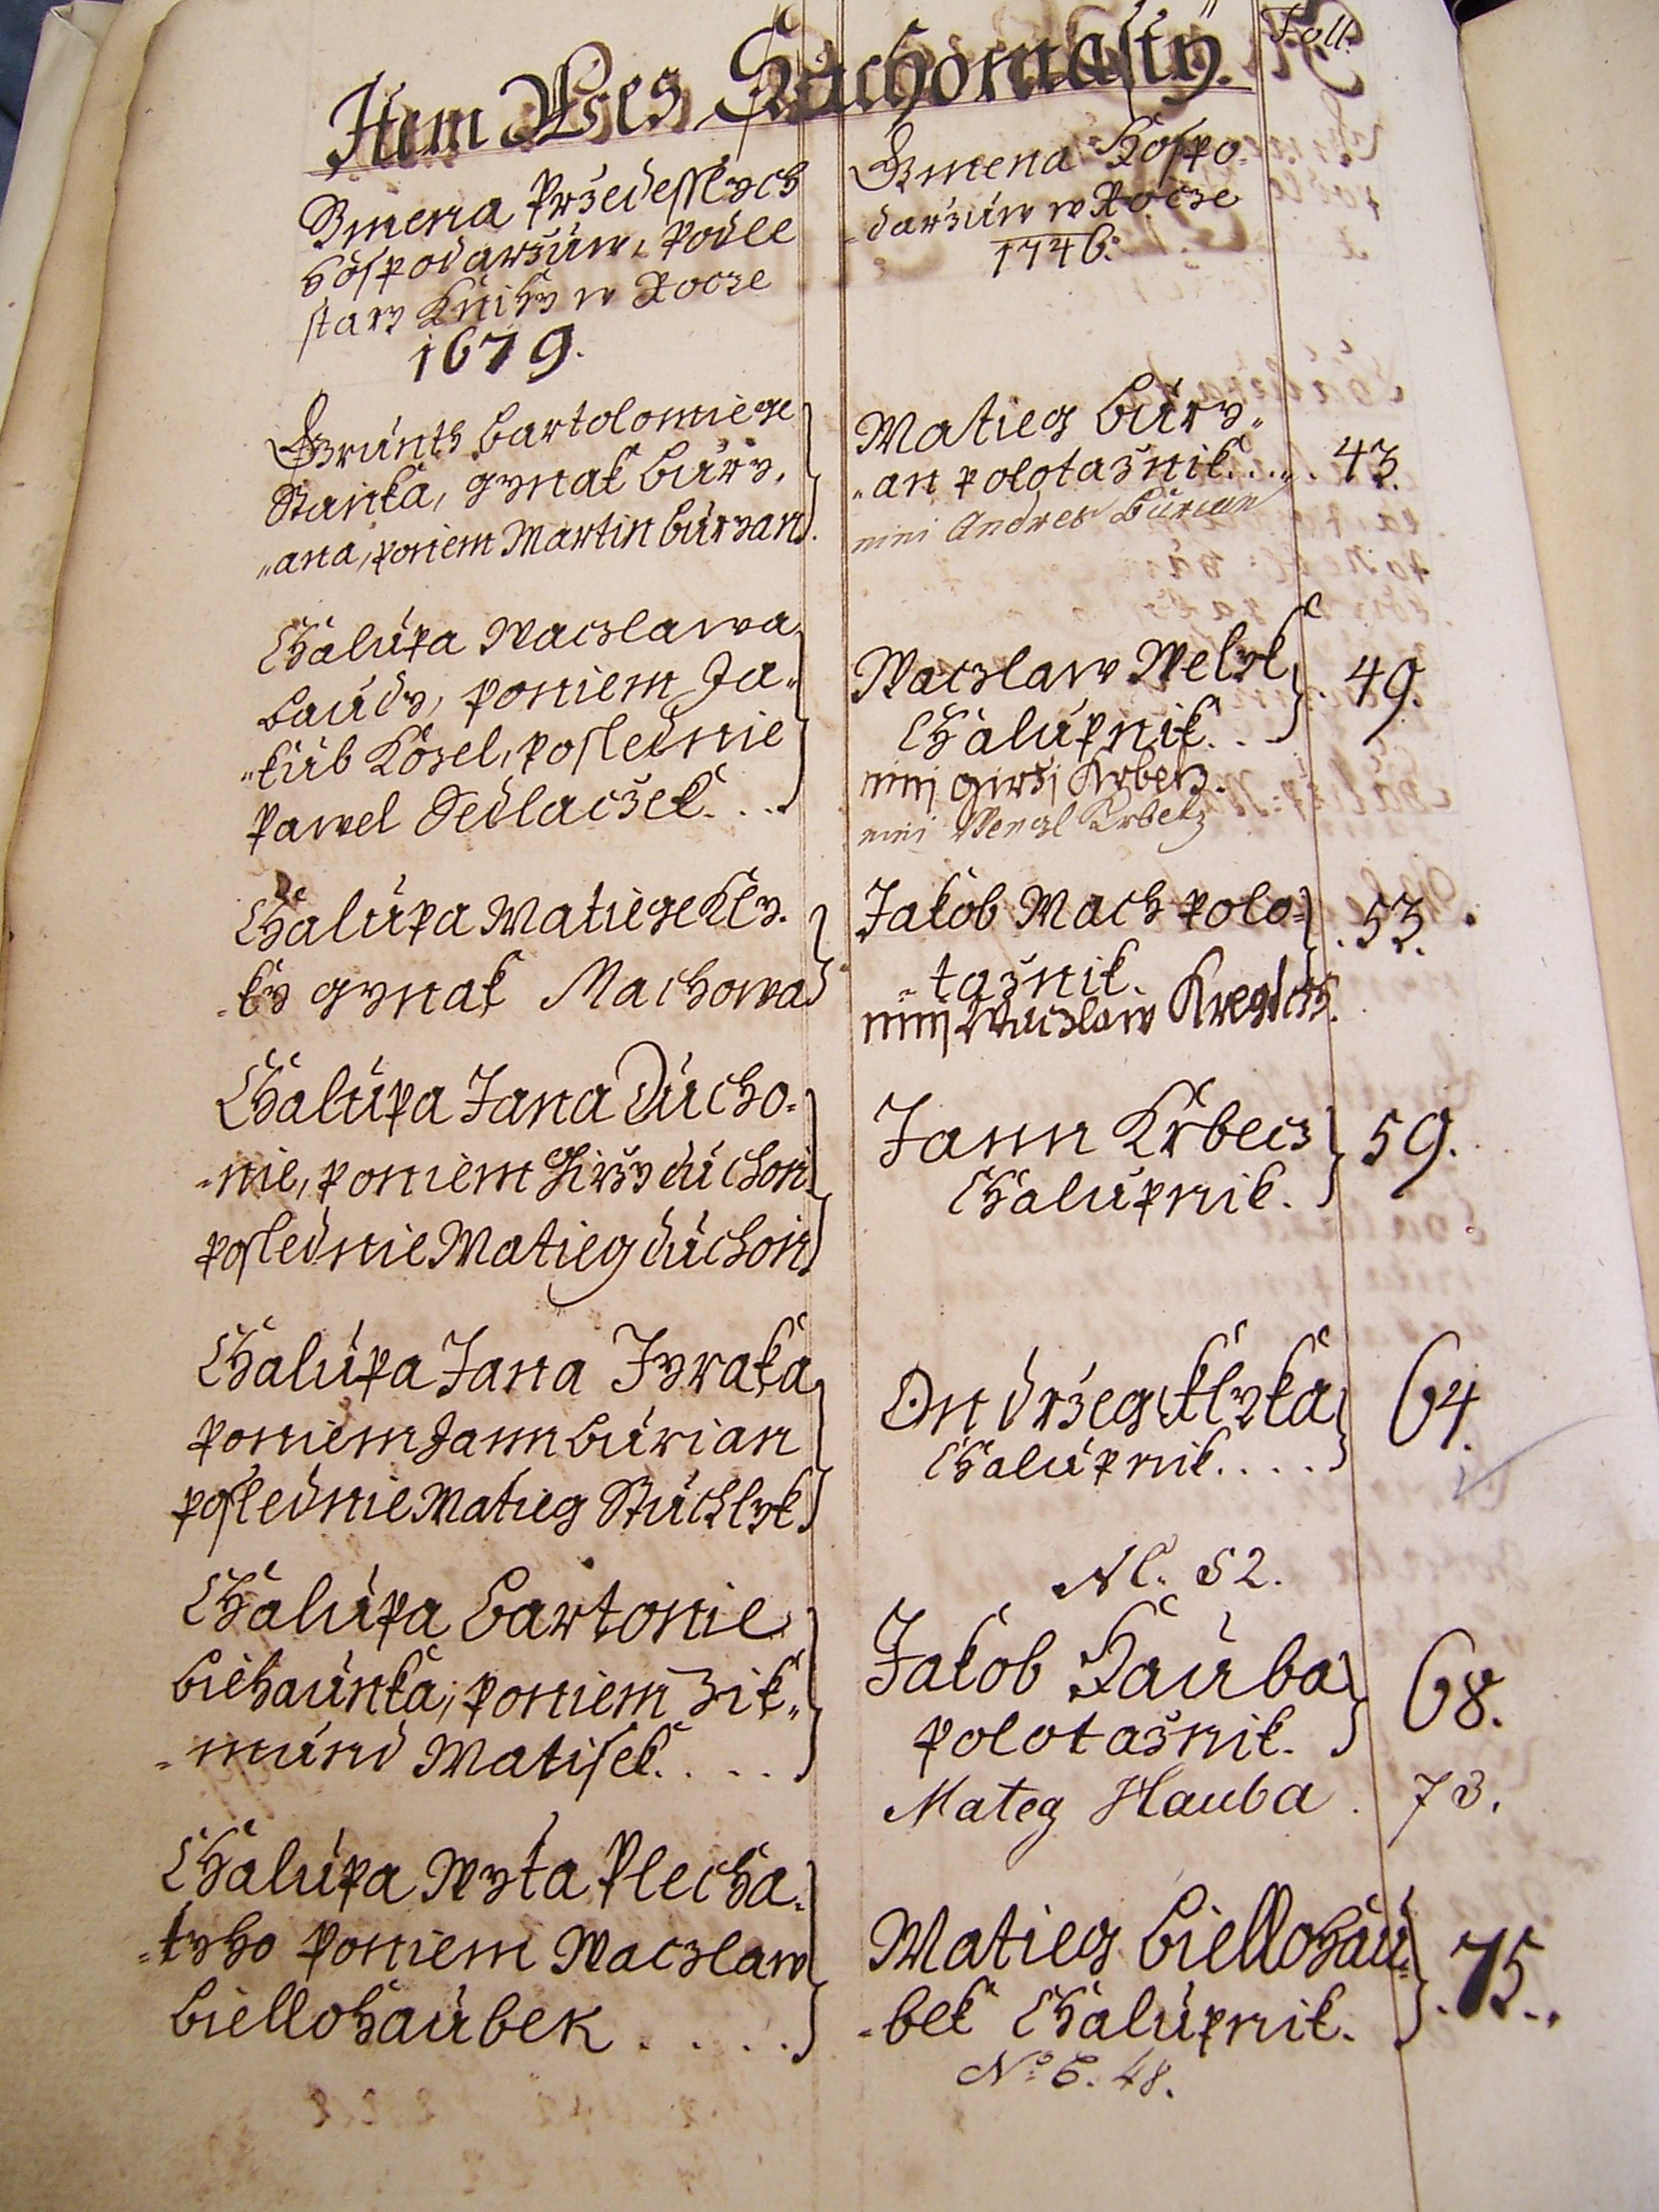 Foll:
Item Wes Suchomasty.
Gmena Przedesslych
hospodarzuw, podle
stary Knihy w Rocze
1679.
Gmena Hospo-
-darzuw w Rocze
1746:
Grunth Bartolomiege
Stanka, gynak Bury-
"ana, poniem Martin Buryan.
Matieg Bury"
"an polotaznik..... 43.
nini Andres Burian
Chalupa Waczlawa
Baudy, poniem Ja"
"kub Kozel, poslednie
Pawel Sedlaczek. . .
Waczlaw Welyk
Chalupnik. . . 49.
ninj Girzj Krbecz.
nini Wenzl Krbetz
Chalupa Matiege Kly-
-ky gynak Machowa
Jakob Mach polo= . 53.
-taznik.
ninj Waczlaw Kregczy.
Chalupa Jana Ducho-
-nie, poniem Girzy duchon
poslednie Matieg duchon
Jann Krbecz 59.
Chalupnik.
Chalupa Jana Jyraka
poniem Jann Burian
poslednie Matieg Stuchlyk
Ondrzeg Klyka 64.
Chalupnik. . . .
Chalupa Bartonie
Biehaunka, poniem Zik"
-mund Matisek. . . .
NC. 52.
Jakob Hauba 68.
polotaznik.
Mateg Hauba . 73.
Chalupa Wyta Plecha-
-tyho poniem Waczlaw
Biellohaubek . . . .
Matieg Biellohau= . 75.
-bek Chalupnik.
No C. 48.